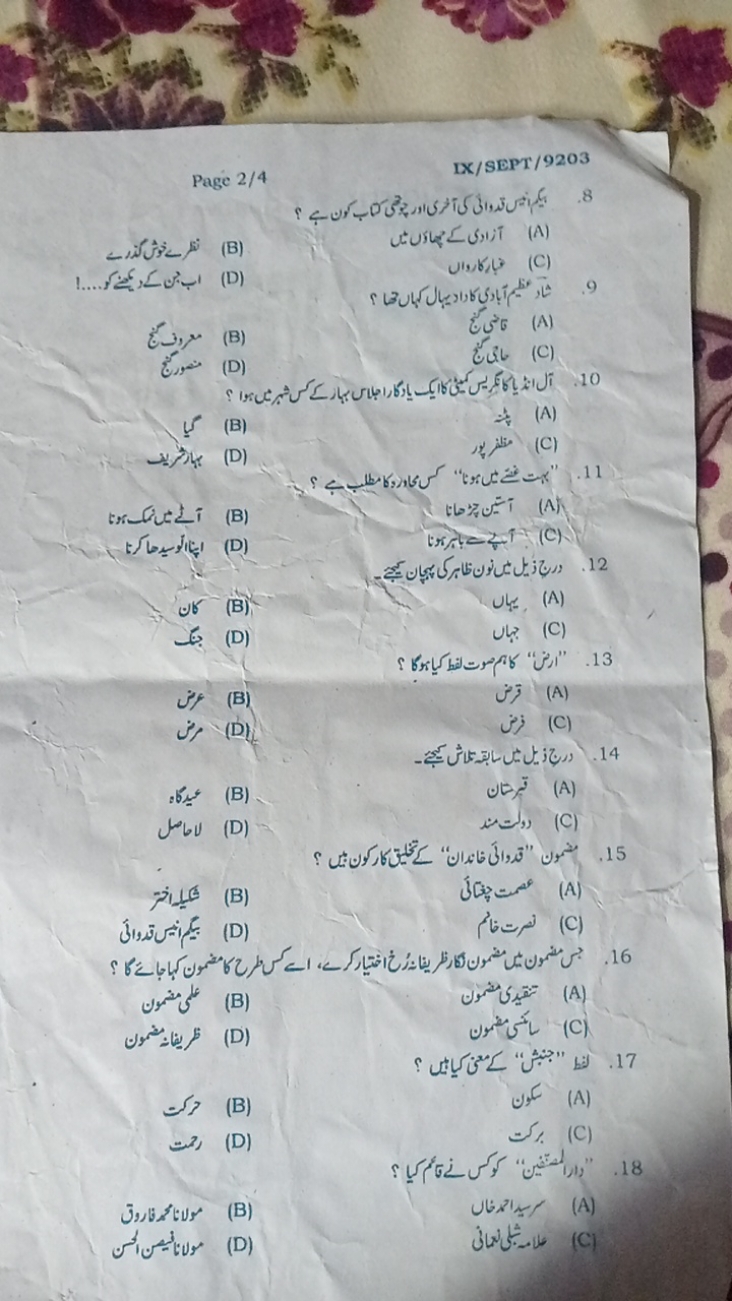 IX/SEPT/9203 Page 2/4
8. بیگم انیس قدوائی کی آخری اور چوتھی کتاب کون ہے ؟
(A) آزادی کے چھاؤں میں (B) نظرے خوش گذرے
(C) غبار کارواں (D) اب جن کے دیکھنے کو....!
9. شاد عظیم آبادی کا دادیہال کہاں تھا ؟
(A) قاضی گنج (B) معروف گنج
(C) حاجی گنج (D) منصور گنج
10. آل انڈیا کانگریس کمیٹی کا ایک یادگار اجلاس بہار کے کس شہر میں ہوا ؟
(A) پٹنہ (B) گیا
(C) مظفر پور (D) بہار شریف
11. ”بہت غصّے میں ہونا“ کس محاورہ کا مطلب ہے ؟
(A) آستین چڑھانا (B) آٹے میں نمک ہونا
(C) آپے سے باہر ہونا (D) اپنا الّو سیدھا کرنا
12. درج ذیل میں نون ظاہر کی پہچان کیجئے۔
(A) یہاں (B) کان
(C) جہاں (D) جنگ
13. ”ارض“ کا ہم صوت لفظ کیا ہوگا ؟
(A) قرض (B) عرض
(C) فرض (D) مرض
14. درج ذیل میں سابقہ تلاش کیجئے۔
(A) قبرستان (B) عیدگاہ
(C) دولت مند (D) لاحاصل
15. مضمون ”قدوائی خاندان“ کے تخلیق کار کون ہیں ؟
(A) عصمت چغتائی (B) شکیلہ اختر
(C) نصرت خانم (D) بیگم انیس قدوائی
16. جس مضمون میں مضمون نگار ظریفانہ رُخ اختیار کرے، اسے کس طرح کا مضمون کہا جائے گا ؟
(A) تنقیدی مضمون (B) علمی مضمون
(C) سائنسی مضمون (D) ظریفانہ مضمون
17. لفظ ”جنبش“ کے معنی کیا ہیں ؟
(A) سکون (B) حرکت
(C) برکت (D) رحمت
18. ”دارالمصنّفین“ کو کس نے قائم کیا ؟
(A) سر سید احمد خاں (B) مولانا محمد فاروق
(C) علامہ شبلی نعمانی (D) مولانا فیض الحسن